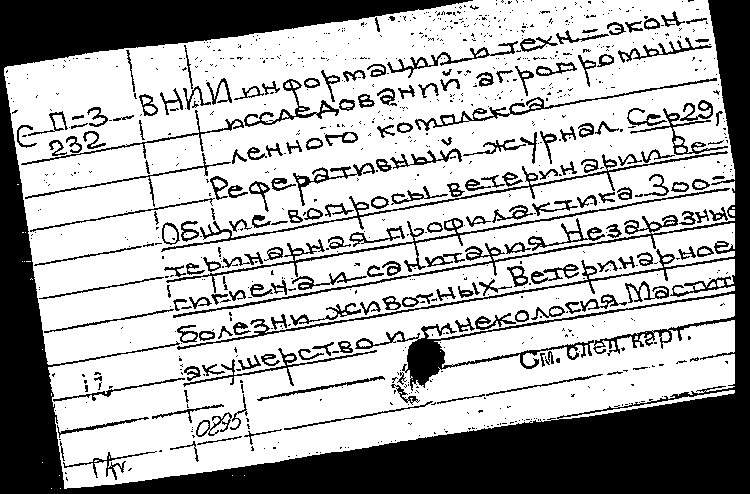 С П-3
232
ВНИИ информации и техн.-экон.
исследований агропромыш-
ленного комплекса.
Реферативный журнал. Сер 29,
Общие вопросы ветеринарии Ве-
теринарная профилактика Зоо-
гигиена и санитария Незаразные
болезни животных Ветеринарное
акушерство и гинекология Мастит
См. след. карт.
0895